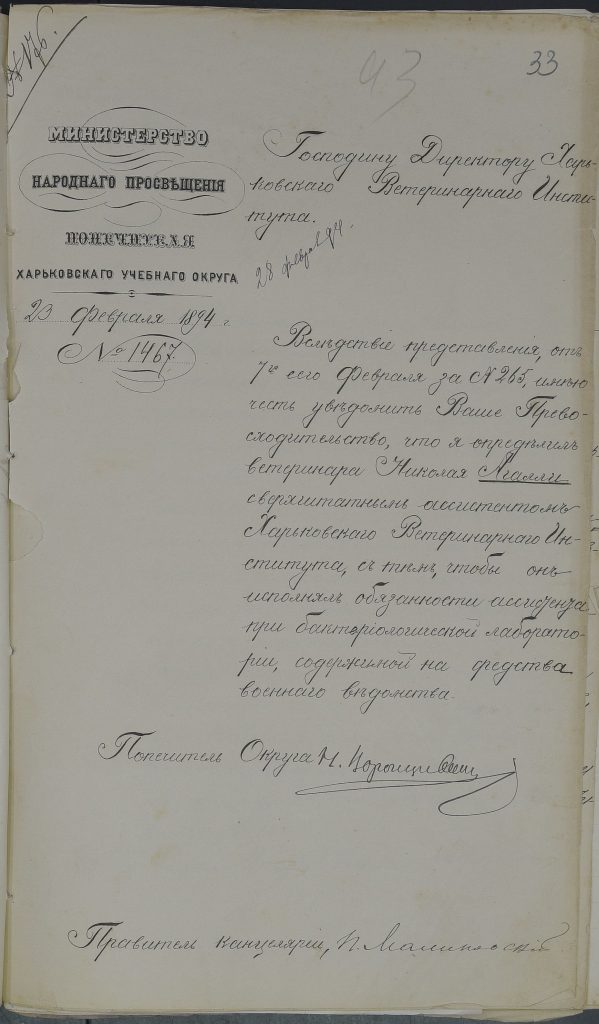 43
33
МИНИСТЕРСТВО
НАРОДНАГО ПРОСВѢЩЕНІЯ
ХАРЬКОВСКАГО УЧЕБНАГО ОКРУГА
23 Февраля 1894 г.
№ 1467.
Господину Директору Харь-
ковскаго Ветеринарнаго Инсти-
тута.
28 февраля 94.
Вслѣдствіе представленія, отъ
7го сего Февраля за № 265, имѣю
честь увѣдомить Ваше Прево-
сходительство, что я опредѣлилъ
ветеринара Николая Агалли
сверхштатнымъ ассистентомъ
Харьковскаго Ветеринарнаго Ин-
ститута, съ тѣмъ, чтобы онъ
исполнялъ обязанности ассистента
при бактеріологической лаборато-
ріи, содержимой на средства
военнаго вѣдомства.
Попечитель Округа Н.
Правитель канцеляріи,